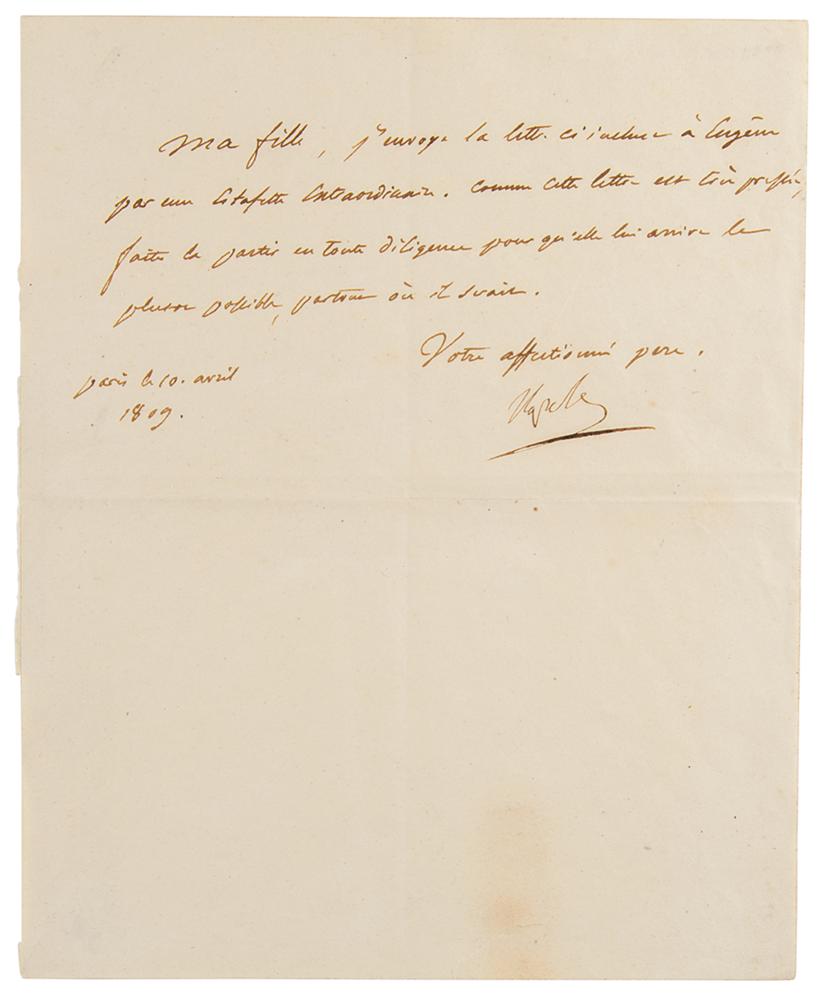 Ma fille, j'envoye la lettre ci incluse à Eugène
par une estafette extraordinaire. Comme cette lettre est très pressée,
faite la partir en toute diligence pour qu'elle lui arrive le
plutot possible, partout où il serait.
Votre affectionné pere.
paris le 10. avril
1809.